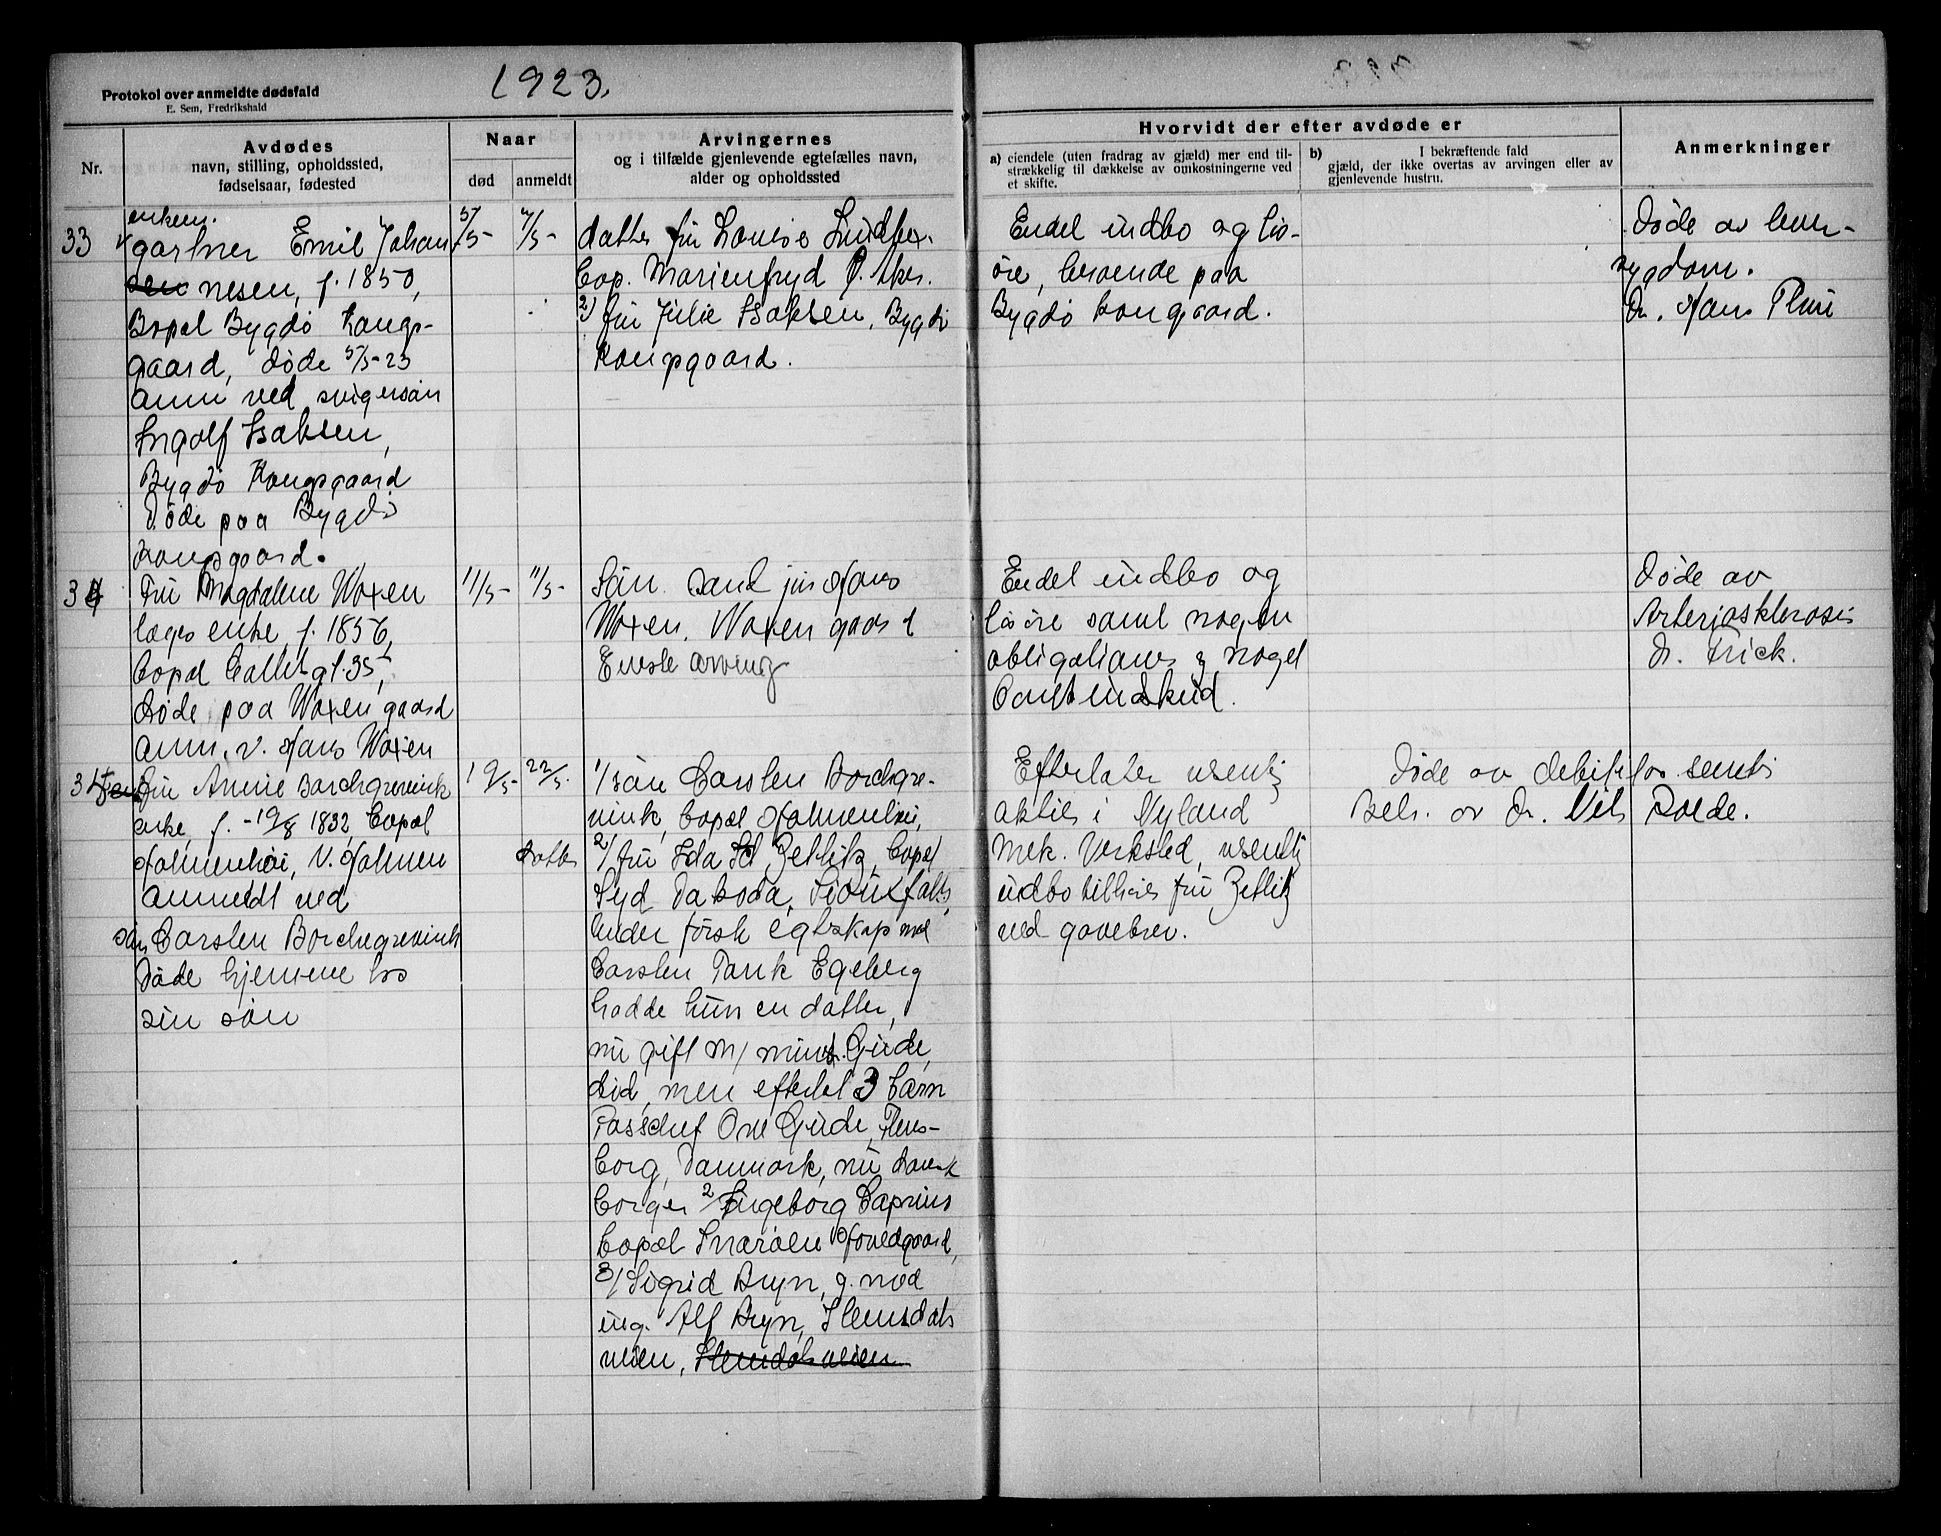 1923.
Protokol over anmeldte dødsfald
E. Sem, Fredrikshald
Nr.
Avdødes
navn, stilling, opholdssted,
fødselsaar, fødested
Naar
død
anmeldt
Arvingernes
og i tilfælde gjenlevende egtefælles navn,
alder og opholdssted
Hvorvidt der efter avdøde er
a) eiendele (uten fradrag av gjæld) mer end til-
strækkelig til dækkelse av omkostningerne ved
et skifte.
b) I bekræftende fald
gjæld, der ikke overtas av arvingen eller av
gjenlevende hustru.
Anmerkninger
33
enkem.
gartner Emil Johan
nesen, f. 1850,
Bopæl Bygdø Kongs-
gaard, døde 5/5-23
Anm ved svigersøn
Ingolf Isaksen,
Bygdø Kongsgaard
Døde paa Bygdø
Kongsgaard.
5/5-
7/5-
datter fru Louise Lindber.
bop. Marienfryd Ø. Aker.
2) fru Julie Isaksen, Bygdø
Kongsgaard.
Endel indbo og løs-
øre, beroende paa
Bygdø kongsgaard.
Døde av lever-
sygdom.
Dr. Hans Thue
34
Fru Magdalene Woxen
læges enke f. 1856,
bopæl gt. 35,
døde paa Woxengaard
Anm. v. Hans Woxen
11/5-
11/5-
Søn. cand jur Hans
Woxen, Woxengaard
Eneste arving
Endel indbo og
løsøre samt nogen
obligationer & noget
bankindskud.
Døde av
Arteriosklerosis
Dr. Frick.
35
Fru Annie Borchgrevink
enke, f. - 19/8 1832, bopæl
Holmenhøi, V. Holmen
Anmeldt ved
søn Carsten Borchegrevink
Døde hjemme hos
sin søn
19/5-
22/5.
datter
1/ søn Carsten Borchgre-
vink, bopæl Holmenhøi,
2/ fru Ida Zetlitz, bopæl
Syd Dakoda, Siouxfalls,
Under første egteskap med
Carsten Tank Egeberg
hadde hun en datter,
nu gift m/ Gude,
død, men efterlot 3 barn
Passchef Ove Gude, Flens-
borg, Danmark, nu dansk
borger 2/ Ingeborg
bopæl Snarøen Hovedgaard,
3/ Sigrid Bryn, g. med
ing. Alf Bryn, Hemsdals
veien, Hemsdalsveien
Efterlater væsentlig
aktier i Nyland
Mek. Verksted, væsentlig
indbo tilhører fru Zetlitz
ved gavebrev.
Døde av debilitas senilis
Beh. av Dr. Nils Roede.